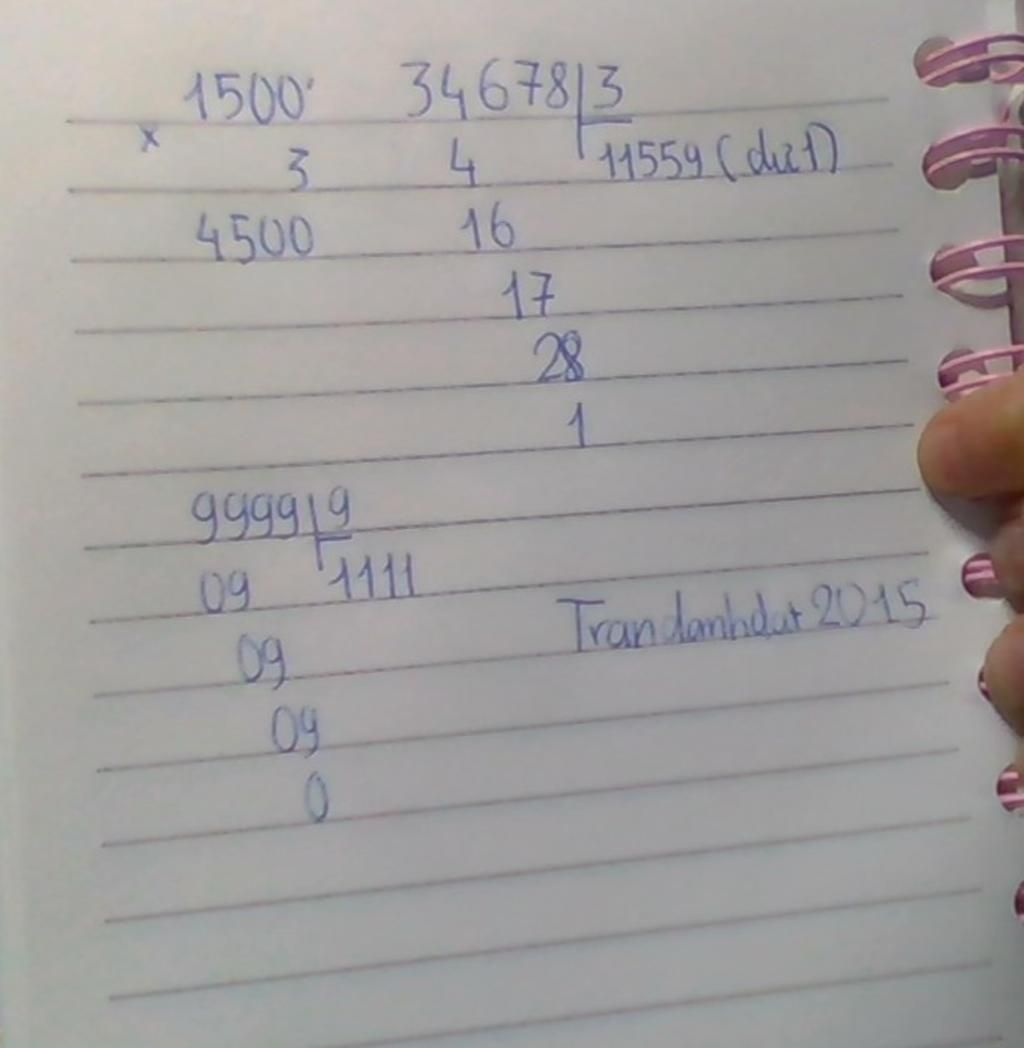 1500 34678 3
x
3 4 11559 (dư 1)
4500 16
17
28
1
9999 9
09 1111
Trandanhdat 2015
09
09
0